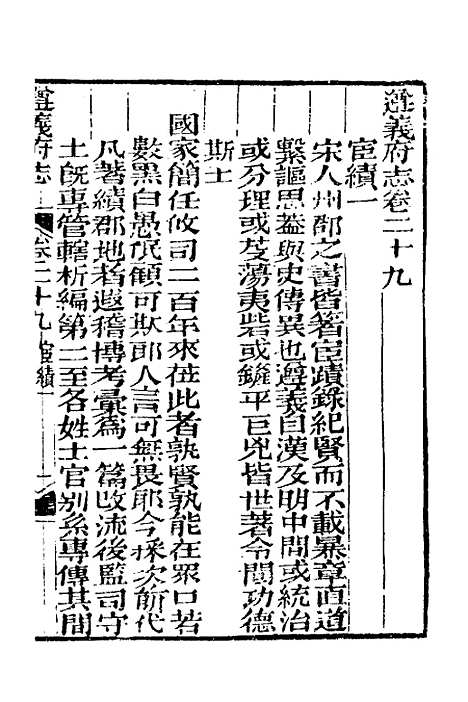 遵義府志卷二十九
宦績一
宋人州郡之書皆著宦蹟錄紀賢而不載暴章直道
繫謳思葢與史傳異也遵義自漢及明中間或統治
或分理或芟蕩夷砦或鏟平巨兇皆世著令聞功德
斯土
國家簡任攸司二百年來莅此者孰賢孰能在眾口若
數黑白愚氓顧可欺耶人言可無畏耶今採次前代
凡著績郡地者遐稽博考彙為一篇改流後監司守
土旣專管轄析編第二至各姓土官別系專傳其間
遵義府志 卷二十九 宦績一 一